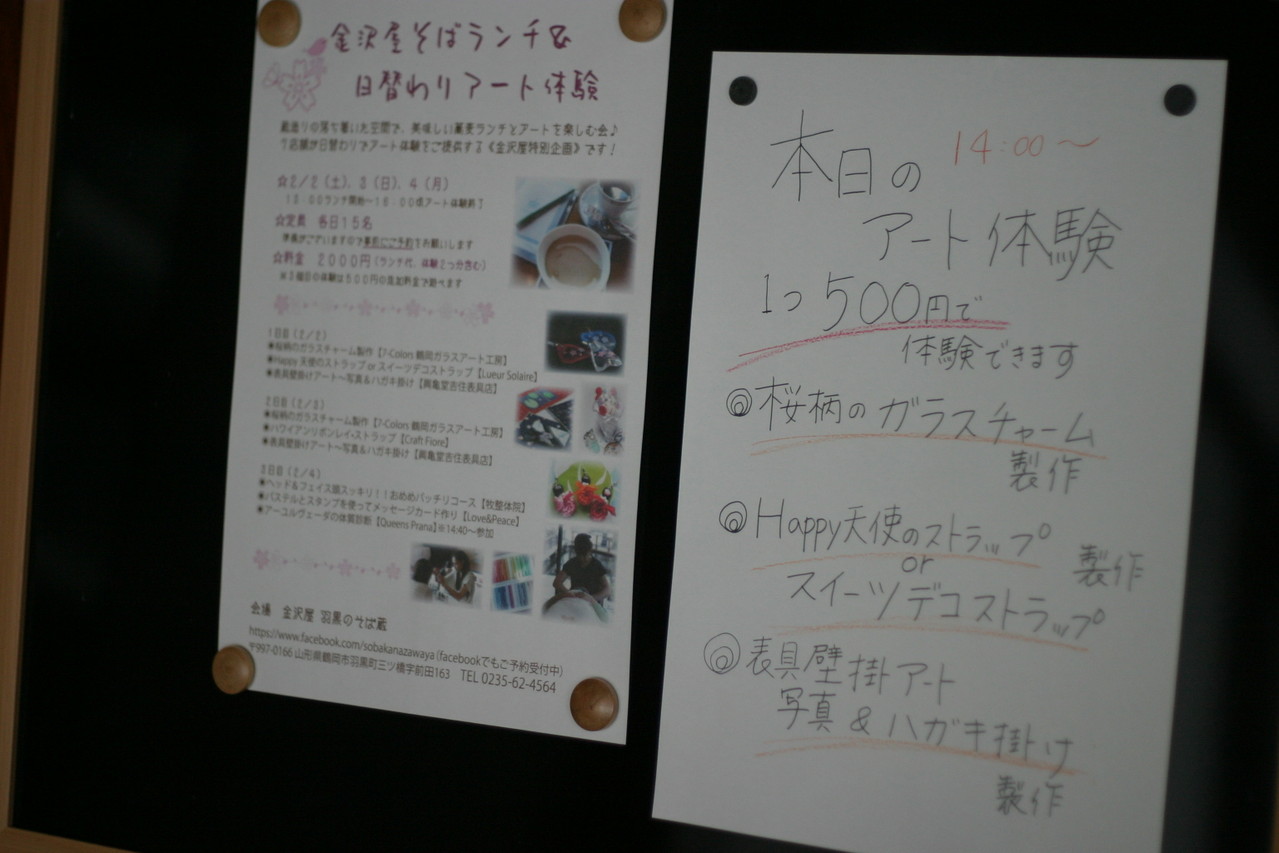 金沢屋そばランチ&
日替わりアート体験
蔵造りの落ち着いた空間で、美味しい蕎麦ランチとアートを楽しむ会♪
7店舗が日替わりでアート体験をご提供する《金沢屋特別企画》です!
☆2/2(土)、3(日)、4(月)
13:00ランチ開始~16:00頃アート体験終了
☆定員 各日15名
準備がございますので事前にご予約をお願いします
☆料金 2000円(ランチ代、体験2つ分含む)
※3種目の体験は500円の追加料金で遊べます
1日目(2/2)
●桜柄のガラスチャーム製作【7-Colors 鶴岡ガラスアート工房】
●Happy 天使のストラップ or スイーツデコストラップ【Lueur Solaire】
●表具壁掛けアート~写真&ハガキ掛け【興亀堂吉住表具店】
2日目(2/3)
●桜柄のガラスチャーム製作【7-Colors 鶴岡ガラスアート工房】
●ハワイアンリボンレイ・ストラップ【Craft Fiore】
●表具壁掛けアート~写真&ハガキ掛け【興亀堂吉住表具店】
3日目(2/4)
●ヘッド&フェイス頭スッキリ!!おめめパッチリコース【牧整体院】
●パステルとスタンプを使ってメッセージカード作り【Love&Peace】
●アーユルヴェーダの体質診断【Queens Prana】※14:40~参加
会場 金沢屋 羽黒のそば蔵
https://www.facebook.com/sobakanazawaya(facebookでもご予約受付中)
〒997-0166 山形県鶴岡市羽黒町三ツ橋字前田163 TEL 0235-62-4564
本日の 14:00~
アート体験
1つ500円で
体験できます
◎桜柄のガラスチャーム
製作
◎Happy天使のストラップ
or 製作
スイーツデコストラップ
◎表具壁掛アート
写真&ハガキ掛け
製作